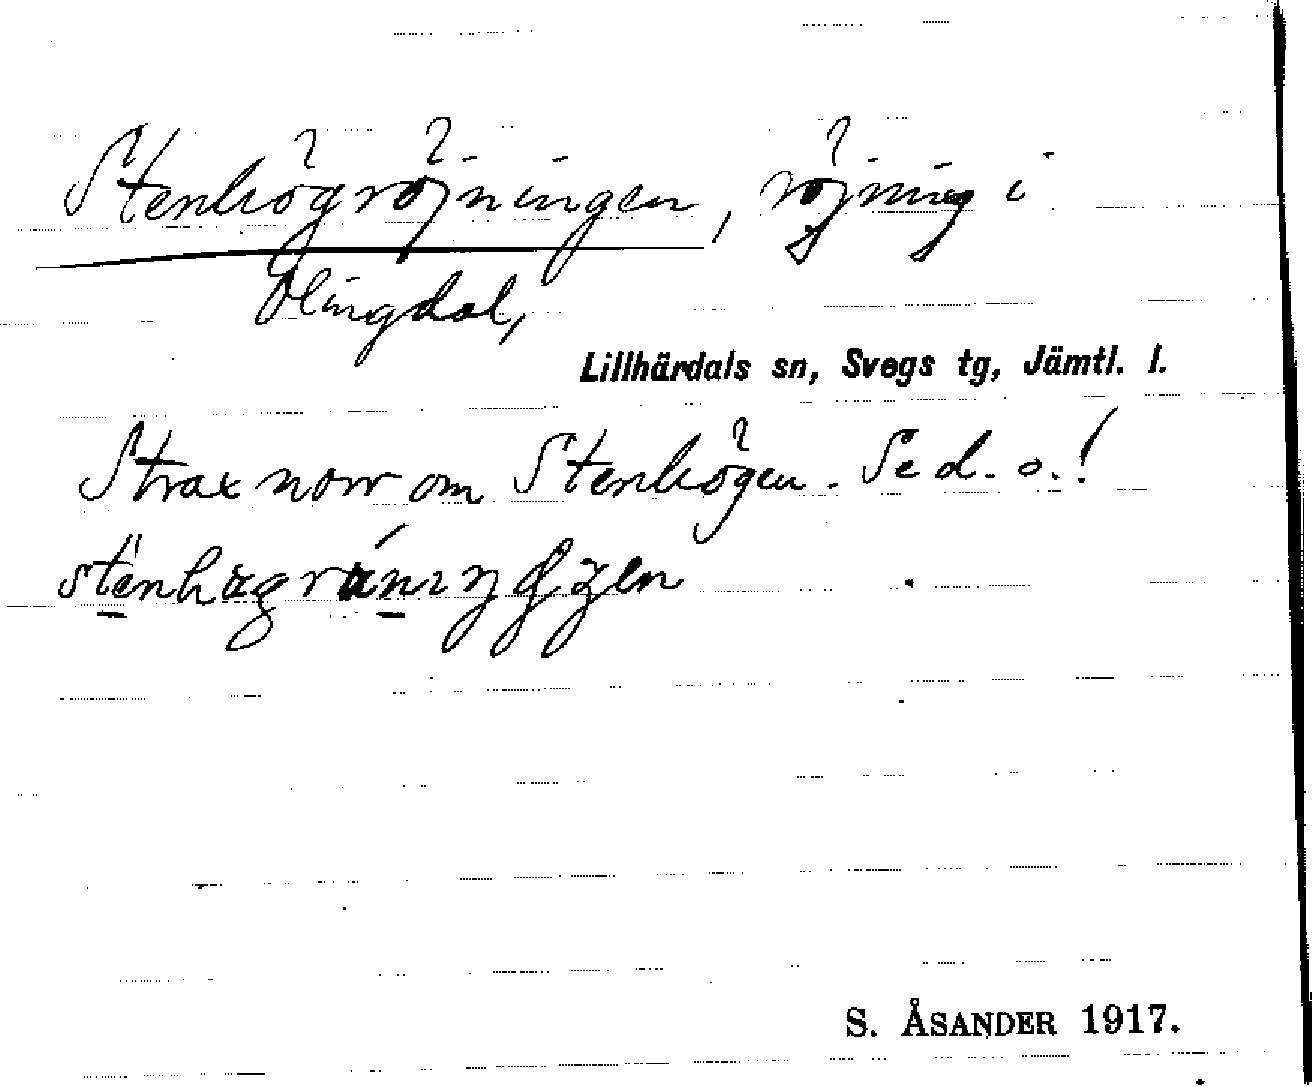 Stenhögröjningen, röjning i
Olingdal,
Lillhärdals sn, Svegs tg, Jämtl. l.
Strax norr om Stenhögen. Se d. o.!
S. ÅSANDER 1917.